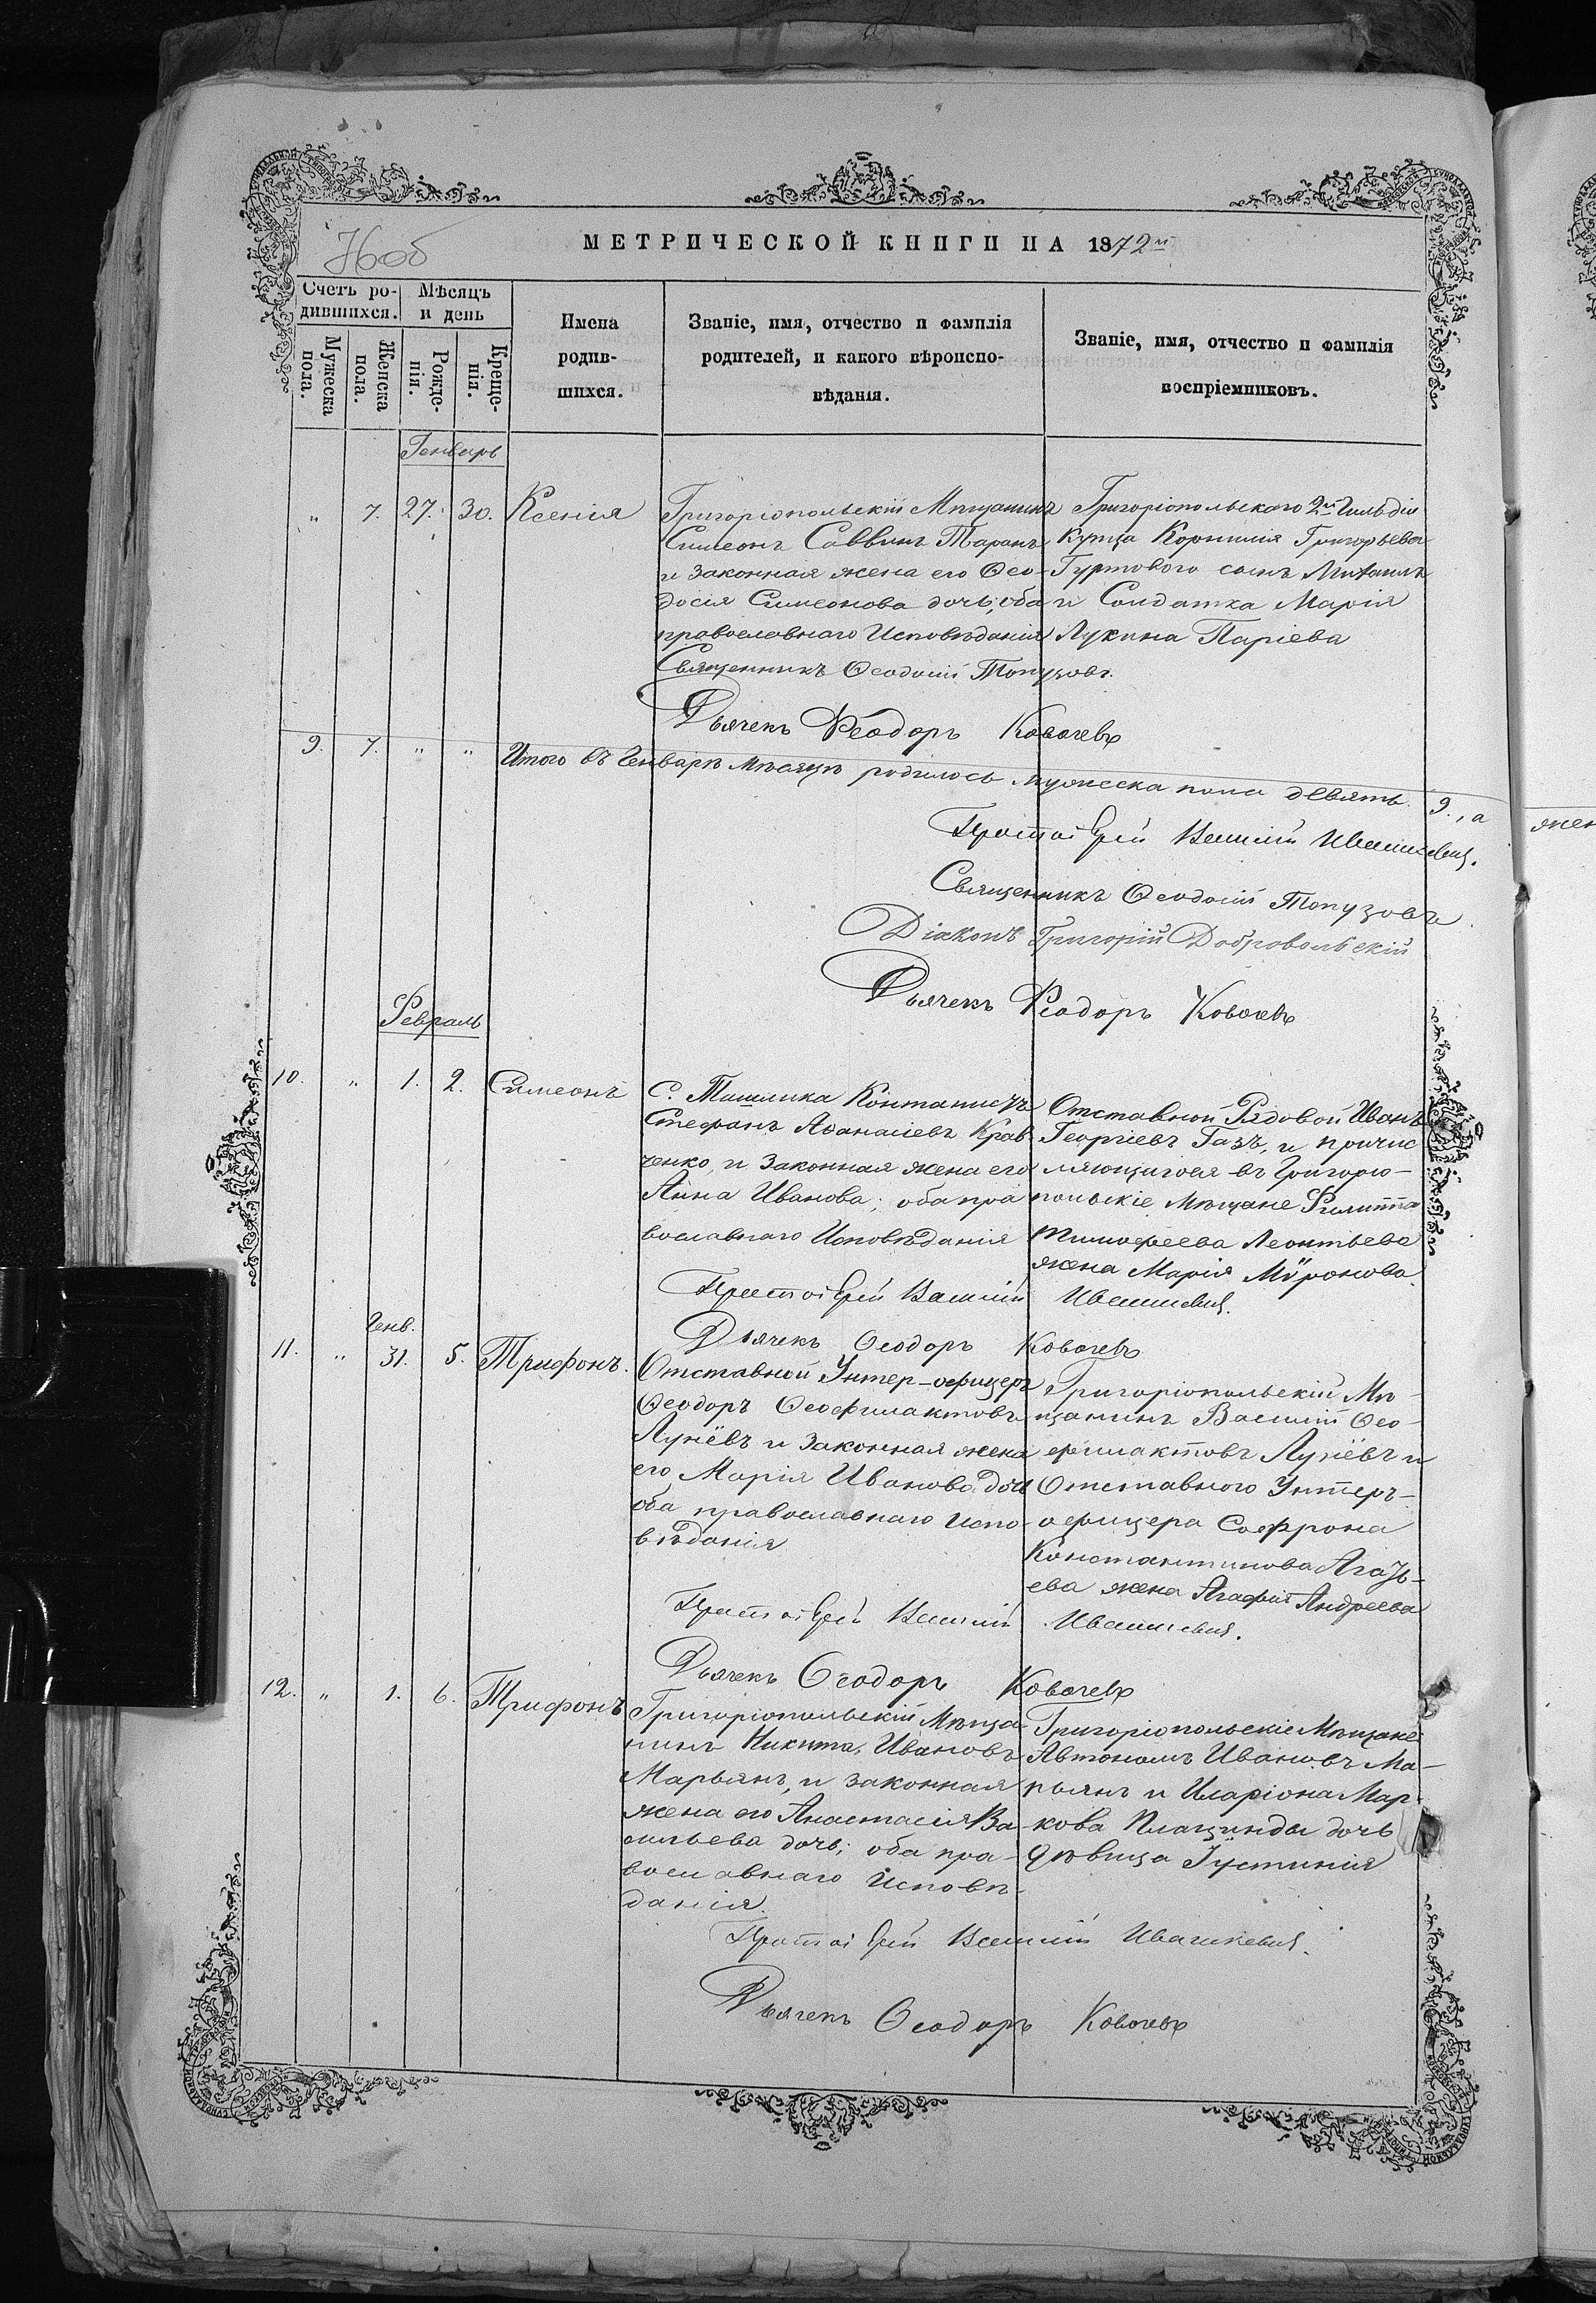 МЕТРИЧЕСКОЙ КНИГИ НА 1872й
Счетъ ро-
дившихся.
Мѣсяцъ
и день
Мужеска
пола.
Женска
пола.
Рожде-
нія.
Креще-
нія.
Имена
родив-
шихся.
Званіе, имя, отчество и фамилія
родителей, и какого вѣроиспо-
вѣданія.
Званіе, имя, отчество и фамилія
воспріемниковъ.
Генварь
" 7. 27. 30. Ксенія
Григоріопольскій Мѣщанинъ
Симеонъ Саввинъ Таранъ
и законная жена его Ѳео-
досія Симеонова дочь, оба
православнаго Исповѣданія
Григоріопольскаго 2й Гильдіи
Купца Корнилія Григорьева
Гуртового сынъ Михаилъ
и Солдатка Марія
Лукина Паріева
Священникъ Ѳеодосій Топузовъ.
Дьячекъ Феодоръ Ковачевъ
9. 7. " " Итого въ Генварѣ мѣсяцѣ родилось мужеска пола девять 9., а
Протоіерей Василій Ивашкевич.
Священникъ Ѳеодосій Топузовъ
Діаконъ Григорій Добровольскій
Дьячекъ Феодоръ Ковачевъ
Февраль
10. " 1. 2. Симеонъ
С. Ташлика
Стефанъ Аѳанасіевъ Крав
ченко, и законная жена его
Анна Иванова; оба пра
вославнаго Исповѣданія
Отставной Рядовой Иванъ
Георгіевъ Газъ, и причис
ляющигося въ Григоріо-
польскіе Мѣщане Филиппа
Тимофеева Леонтьева
жена Марія Мѵронова.
Протоіерей Василій Ивашкевич.
Дьячекъ Ѳеодоръ Ковачевъ
Генв.
11. " 31. 5. Трифонъ.
Отставной Унтер-офицеръ
Ѳеодоръ Ѳеофилактовъ
Лунёвъ и законная жена
его Марія Иванова дочь
оба православнаго испо-
вѣданія
Григоріопольскій Мѣ-
щанинъ Василій Ѳео-
филактовъ Лунёвъ и
Отставного Унтеръ-
офицера Софрона
Константинова
ева жена Агафія Андреева
Протоіерей Василій Ивашкевич.
Дьячекъ Ѳеодоръ Ковачевъ
12. " 1. 6. Трифонъ
Григоріопольскій Мѣща
нинъ Никита Ивановъ
Марьянъ, и законная
жена его Анастасія Ва-
сильева дочь; оба пра-
вославнаго Исповѣ-
данія.
Григоріопольскіе Мѣщане
Автономъ Ивановъ Ма-
рьянъ и Иларіона Мар-
кова Плацинды дочь
дѣвица Іустинія
Протоіерей Василій Ивашкевич.
Дьячекъ Ѳеодоръ Ковачевъ
жен